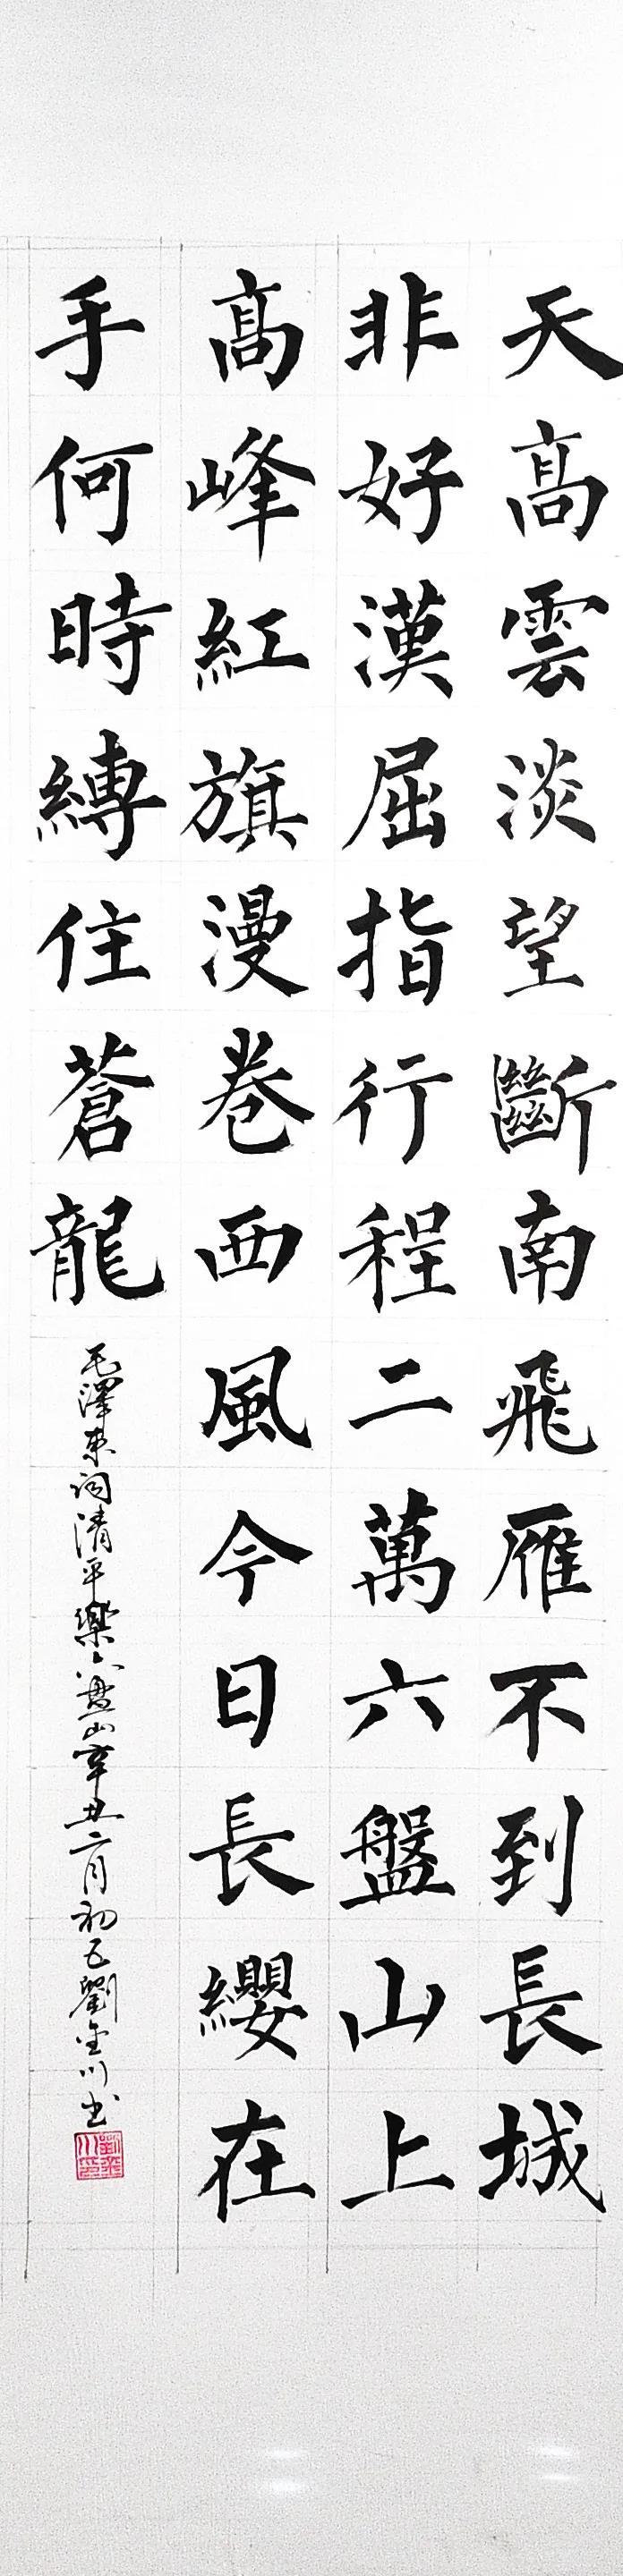 天高雲淡望斷南飛雁不到長城
非好漢屈指行程二萬六盤山上
高峰紅旗漫卷西風今日長纓在
手何時縛住蒼龍
毛澤東詞清平樂六盤山辛丑二月初五劉金川书